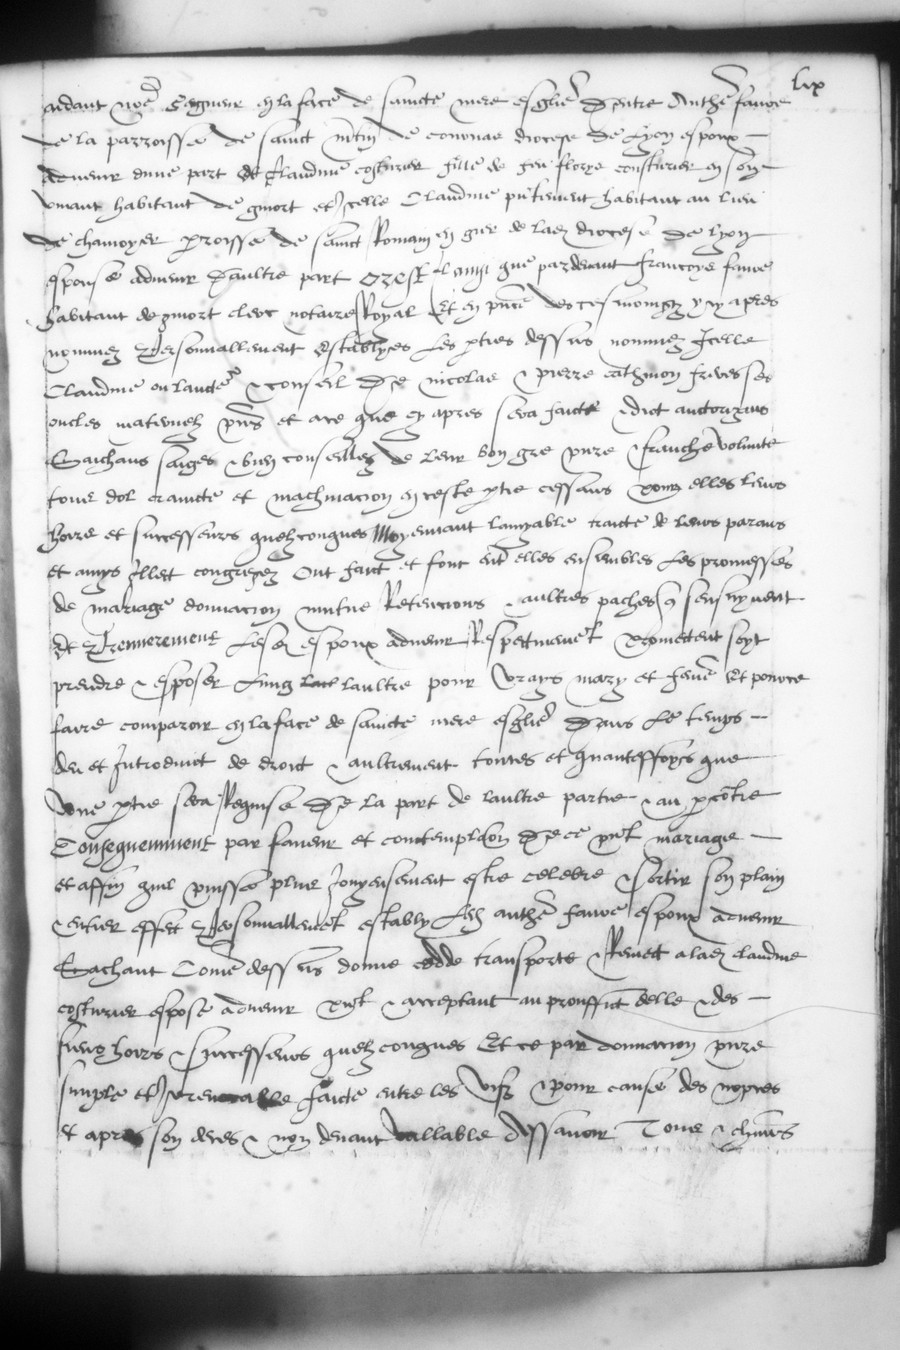 lix
aidant nre Seigneur en la face de saincte mere esglise Dentre Anthe fauve
de la parroisse de sainct mtin de diocese de Lyon espoux
advenir dune part Et Claudine costurier fille de feu costurier en son
vivant habitant de et Icelle Claudine pntement habitant au lieu
de chamoyer proisse de sainct Romain en de lad diocese de Lyon
espouse advenir Daultre part Or est que pardevant francoys fauve
habitant de clerc notaire Royal Et en pnce des tesmoingz cy apres
nommez Personnallement establyes Les pties dessus nommez Icelle
Claudine en & conseil De nicolas & pierre freres ses
oncles maternelz pns et ace que cy apres sera faict & dict auctorizans
Saichans saiges & bien conseillez de leur bon gre pure & franche volunte
tout dol craincte et machinacion en ceste ptie cessans pour elles leurs
hoirs et successeurs quelzconques Moyennant lamyable traicte de leurs parans
et amys Illec congregez Ont faict et font ent elles ensembles Les promesses
de mariage donnacion Retencions & aultres paches q sensuyvent
Et Premierement Lesd espoux advenir Respectivement promettent soyt
prendre & esposer Lung laultre pour vrays mary et feme Et
faire comparoir en la face de saincte mere esglise Dans Le temps
deu et Introduict de droit & aultrement toutes et quanteffoys que
une ptie sera Requise De la part de laultre partie & au pcotre
Consequemment par faveur et contemplaon De ce pnt mariage
et affin quil puisse plus Joyeusement estre celebre & Sortir son plain
& entier effect Personnallement estably Led anthe fauve espoux advenir
Sachant Come dessus donne cedde transporte & Remect a lad claudine
costurier espose advenir pnt & acceptant au prouffict delle & des
siens hoirs & successeurs quelzconques Et ce par donnacion pure
simple et Irrevocable faicte entre les vifz & pour cause des nopces
et apres son deces & non devant vallable Dessavoir Tous & chuns